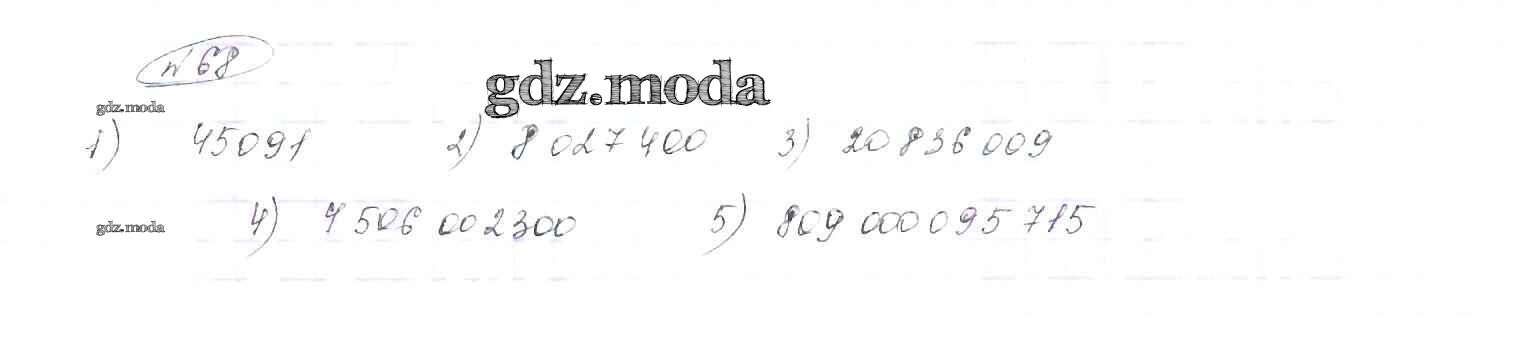 № 68
gdz.moda
gdz.moda
1) 45091 2) 8 027 400 3) 20 836 009
gdz.moda 4) 7 506 002 300 5) 809 000 095 715